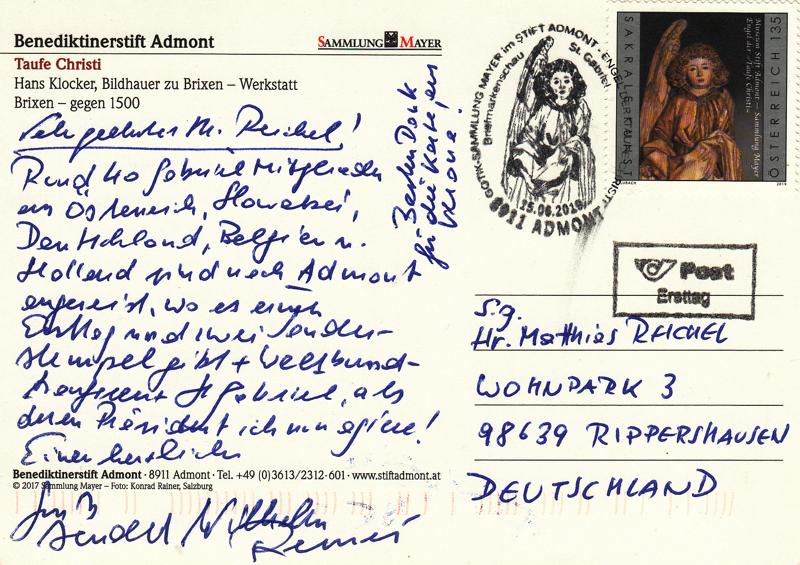 Benediktinerstift Admont
SAMMLUNG MAYER
Taufe Christi
Hans Klocker, Bildhauer zu Brixen – Werkstatt
Brixen – gegen 1500
Sehr geehrter Hr. Reichel!
Rund 40 Gabriel Mitglieder
aus Österreich, Slowakei,
Deutschland, Belgien u.
Holland sind nach Admont
angereist, wo es einen
Ersttag und zwei Sonder-
stempel gibt + Weltbund-
St. Gabriel, als
deren Präsident ich nun agiere!
Einen herzlichen
Gruß
Besten Dank
für die Karte, aus
Benediktinerstift Admont · 8911 Admont · Tel. +49 (0)3613/2312-601 · www.stiftadmont.at
© 2017 Sammlung Mayer – Foto: Konrad Rainer, Salzburg
GOTIK-SAMMLUNG MAYER im STIFT ADMONT - ENGEL DER TAUFE CHRISTI
Briefmarkenschau
St. Gabriel
15.06.2019
8911 ADMONT
SAKRALE KUNST
Museum Stift Admont – Sammlung Mayer
Engel der „Taufe Christi“
ÖSTERREICH 135
2019
Post
Ersttag
S.g.
Hr. Matthias REICHEL
WOHNPARK 3
98639 RIPPERSHAUSEN
DEUTSCHLAND